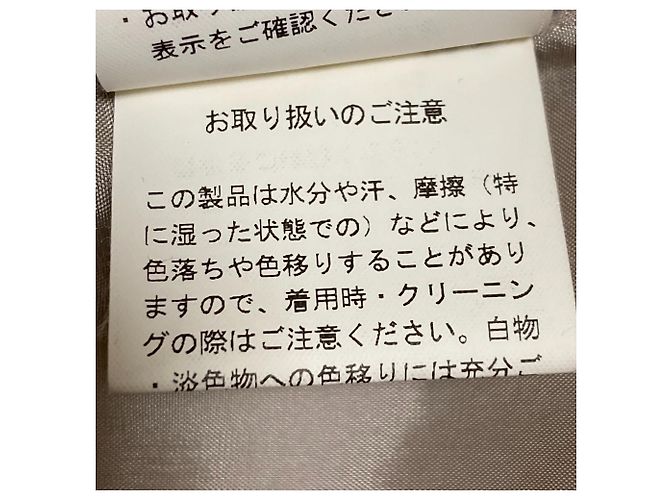 ・お取り
表示をご確認くださ
お取り扱いのご注意
この製品は水分や汗、摩擦（特
に湿った状態での）などにより、
色落ちや色移りすることがあり
ますので、着用時・クリーニン
グの際はご注意ください。白物
・淡色物への色移りには充分ご